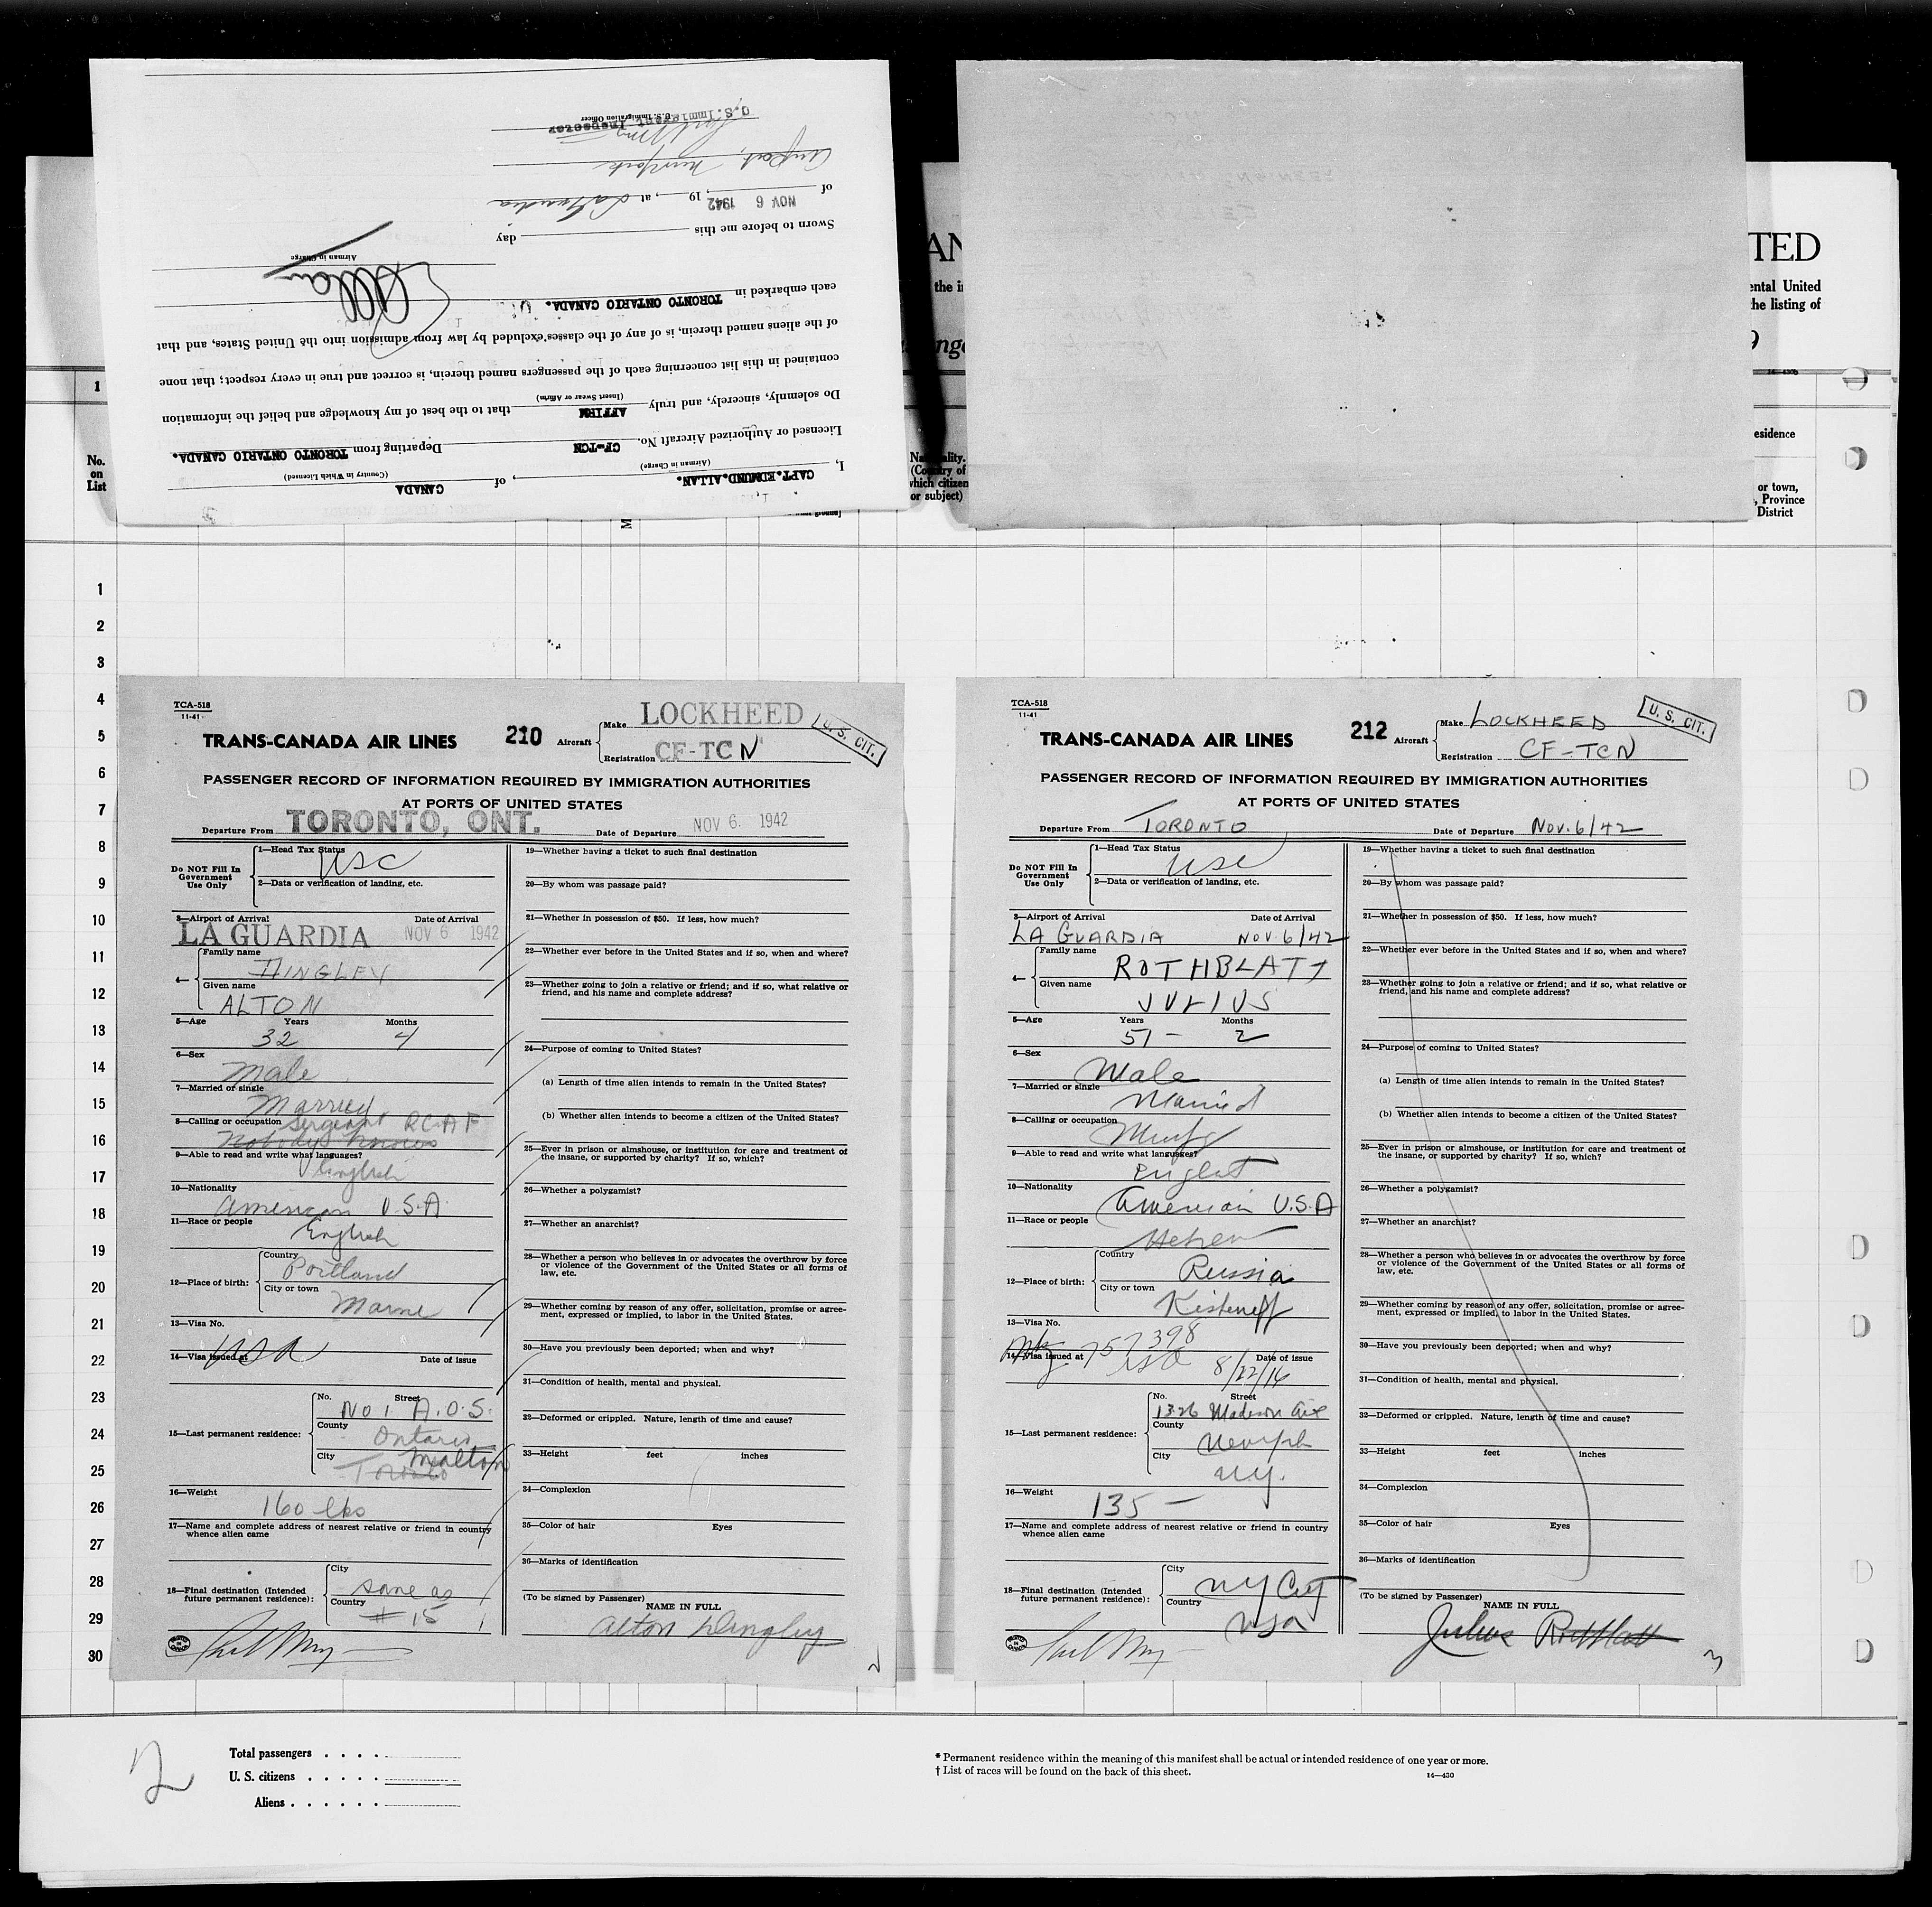 U.S. Immigrant Inspector
U.S. Immigration Officer
Airport, New York
of NOV 6 1942, 19, at La Guardia
Sworn to before me this day
Airman in Charge
each embarked in TORONTO ONTARIO CANADA.
of the aliens named therein, is of any of the classes excluded by law from admission into the United States, and that
contained in this list concerning each of the passengers named therein, is correct and true in every respect; that none
(Insert Swear or Affirm)
Do solemnly, sincerely, and truly AFFIRM that to the best of my knowledge and belief the information
Licensed or Authorized Aircraft No. CF-TCN Departing from TORONTO ONTARIO CANADA.
(Airman in Charge) (Country in Which Licensed)
I, CAPT.EDMUND.ALLAN. , of CANADA
AN
TED
the i
ental United
he listing of
9
1
No.
on
List
(Country of
which citizen
or subject)
esidence
or town,
, Province
District
1
2
3
4
5
6
7
8
9
10
11
12
13
14
15
16
17
18
19
20
21
22
23
24
25
26
27
28
29
30
TCA-518
11-41
TRANS-CANADA AIR LINES
210
Aircraft
Make LOCKHEED
Registration CF-TCN
U. S. CIT.
PASSENGER RECORD OF INFORMATION REQUIRED BY IMMIGRATION AUTHORITIES
AT PORTS OF UNITED STATES
Departure From TORONTO, ONT. Date of Departure NOV 6. 1942
Do NOT Fill In
Government
Use Only
1—Head Tax Status
USC
2—Data or verification of landing, etc.
3—Airport of Arrival Date of Arrival
LA GUARDIA NOV 6 1942
4—
Family name
DINGLEY
Given name
ALTON
5—Age Years Months
32 4
6—Sex
Male
7—Married or single
Married
8—Calling or occupation Sergeant RCAF
9—Able to read and write what languages?
English
10—Nationality
American U.S.A.
11—Race or people
English
12—Place of birth:
Country
Portland
City or town
Maine
13—Visa No.
USA
14—Visa issued at Date of issue
15—Last permanent residence:
No. Street
No 1 A.O.S.
County
Ontario
City Malton
Toronto
16—Weight
160 lbs
17—Name and complete address of nearest relative or friend in country
whence alien came
18—Final destination (Intended
future permanent residence):
City
same as
Country
# 15
19—Whether having a ticket to such final destination
20—By whom was passage paid?
21—Whether in possession of $50. If less, how much?
22—Whether ever before in the United States and if so, when and where?
23—Whether going to join a relative or friend; and if so, what relative or
friend, and his name and complete address?
24—Purpose of coming to United States?
(a) Length of time alien intends to remain in the United States?
(b) Whether alien intends to become a citizen of the United States?
25—Ever in prison or almshouse, or institution for care and treatment of
the insane, or supported by charity? If so, which?
26—Whether a polygamist?
27—Whether an anarchist?
28—Whether a person who believes in or advocates the overthrow by force
or violence of the Government of the United States or all forms of
law, etc.
29—Whether coming by reason of any offer, solicitation, promise or agree-
ment, expressed or implied, to labor in the United States.
30—Have you previously been deported; when and why?
31—Condition of health, mental and physical.
32—Deformed or crippled. Nature, length of time and cause?
33—Height feet inches
34—Complexion
35—Color of hair Eyes
36—Marks of identification
(To be signed by Passenger)
NAME IN FULL
Alton Dingley
2
TCA-518
11-41
TRANS-CANADA AIR LINES
212
Aircraft
Make LOCKHEED
Registration CF-TCN
U. S. CIT.
PASSENGER RECORD OF INFORMATION REQUIRED BY IMMIGRATION AUTHORITIES
AT PORTS OF UNITED STATES
Departure From TORONTO Date of Departure Nov. 6/42
Do NOT Fill In
Government
Use Only
1—Head Tax Status
USC
2—Data or verification of landing, etc.
3—Airport of Arrival Date of Arrival
LA GUARDIA NOV. 6/42
4—
Family name
ROTHBLATT
Given name
JULIUS
5—Age Years Months
51 - 2
6—Sex
Male
7—Married or single
Married
8—Calling or occupation
Manfg
9—Able to read and write what languages?
English
10—Nationality
American U.S.A
11—Race or people
Hebrew
12—Place of birth:
Country
Russia
City or town
Kisheneff
13—Visa No.
757398
14—Visa issued at USA Date of issue
8/22/16
15—Last permanent residence:
No. Street
1326 Madison Ave
County
New York
City
N.Y.
16—Weight
135 -
17—Name and complete address of nearest relative or friend in country
whence alien came
18—Final destination (Intended
future permanent residence):
City
NY City
Country
USA
19—Whether having a ticket to such final destination
20—By whom was passage paid?
21—Whether in possession of $50. If less, how much?
22—Whether ever before in the United States and if so, when and where?
23—Whether going to join a relative or friend; and if so, what relative or
friend, and his name and complete address?
24—Purpose of coming to United States?
(a) Length of time alien intends to remain in the United States?
(b) Whether alien intends to become a citizen of the United States?
25—Ever in prison or almshouse, or institution for care and treatment of
the insane, or supported by charity? If so, which?
26—Whether a polygamist?
27—Whether an anarchist?
28—Whether a person who believes in or advocates the overthrow by force
or violence of the Government of the United States or all forms of
law, etc.
29—Whether coming by reason of any offer, solicitation, promise or agree-
ment, expressed or implied, to labor in the United States.
30—Have you previously been deported; when and why?
31—Condition of health, mental and physical.
32—Deformed or crippled. Nature, length of time and cause?
33—Height feet inches
34—Complexion
35—Color of hair Eyes
36—Marks of identification
(To be signed by Passenger)
NAME IN FULL
Julius Rothblatt
3
2
Total passengers . . . .
U. S. citizens . . . . .
Aliens . . . . . .
* Permanent residence within the meaning of this manifest shall be actual or intended residence of one year or more.
† List of races will be found on the back of this sheet.
14—430